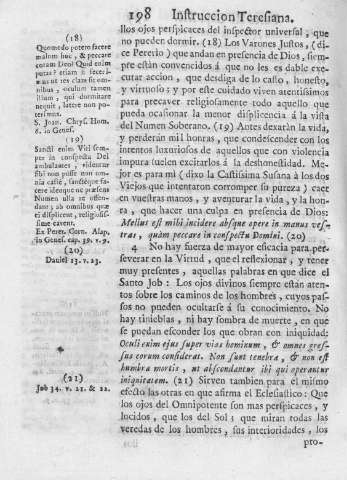 198 Instruccion Teresiana.
(18)
Quomodo potero facere
malum hoc, & peccare
coram Deo? Quid enim
putas? etiam si fecerimus
ut res clam sit
omnibus, oculum tamen
illum, qui dormitare
nequit, latere non
poterimus.
S. Joan. Chrys. Hom.
6. in Genes.
(19)
Sancti enim Viri semper
in conspectu Dei
ambulantes, videntur
sibi non posse non omnia
castè, sanctéque facere
idemque ne præsens
Numen ulla re offendant;
ab omnibus quæ
ti displicent, religiosissime
cavent.
Ex Perer. Corn. Alap.
in Genes. cap. 39. v. 9.
(20)
Daniel 13. v. 23.
(21)
Job 34. v. 21. & 22.
llos ojos perspicaces del inspector universal, que
no pueden dormir. (18) Los Varones Justos, (di-
ce Pererio) que andan en presencia de Dios, siem-
pre están convencidos á que no les es dable exe-
cutar accion, que desdiga de lo casto, honesto,
y virtuoso; y por este cuidado viven atentissimos
para precaver religiosamente todo aquello que
pueda ocasionar la menor displicencia á la vista
del Numen Soberano. (19) Antes dexarán la vida,
y perderán mil honras, que condescender con los
intentos luxuriosos de aquellos que con violencia
impura suelen excitarlos á la deshonestidad. Me-
jor es para mí (dixo la Castissima Susana á los dos
Viejos que intentaron corromper su pureza) caer
en vuestras manos, y aventurar la vida, y la hon-
ra, que hacer una culpa en presencia de Dios:
Melius est mihi incidere absque opere in manus ves-
tras, quàm peccare in conspectu Domini. (20)
4 No hay fuerza de mayor eficacia para per-
severar en la Virtud, que el reflexionar, y tener
muy presentes, aquellas palabras en que dice el
Santo Job: Los ojos divinos siempre están aten-
tos sobre los caminos de los hombres, cuyos pas-
sos no pueden ocultarse á su conocimiento. No
hay tinieblas, ni hay sombra de muerte, en que
se puedan esconder los que obran con iniquidad:
Oculi enim ejus super vias hominum, & omnes gres-
sus eorum considerat. Non sunt tenebræ, & non est
humbra mortis, ut abscondantur ibi qui operantur
iniquitatem. (21) Sirven tambien para el mismo
efecto las otras en que afirma el Eclesiastico: Que
los ojos del Omnipotente son mas perspicaces, y
lucidos, que los del Sol; que miran rodas las
veredas de los hombres, sus interioridades, los
pro-